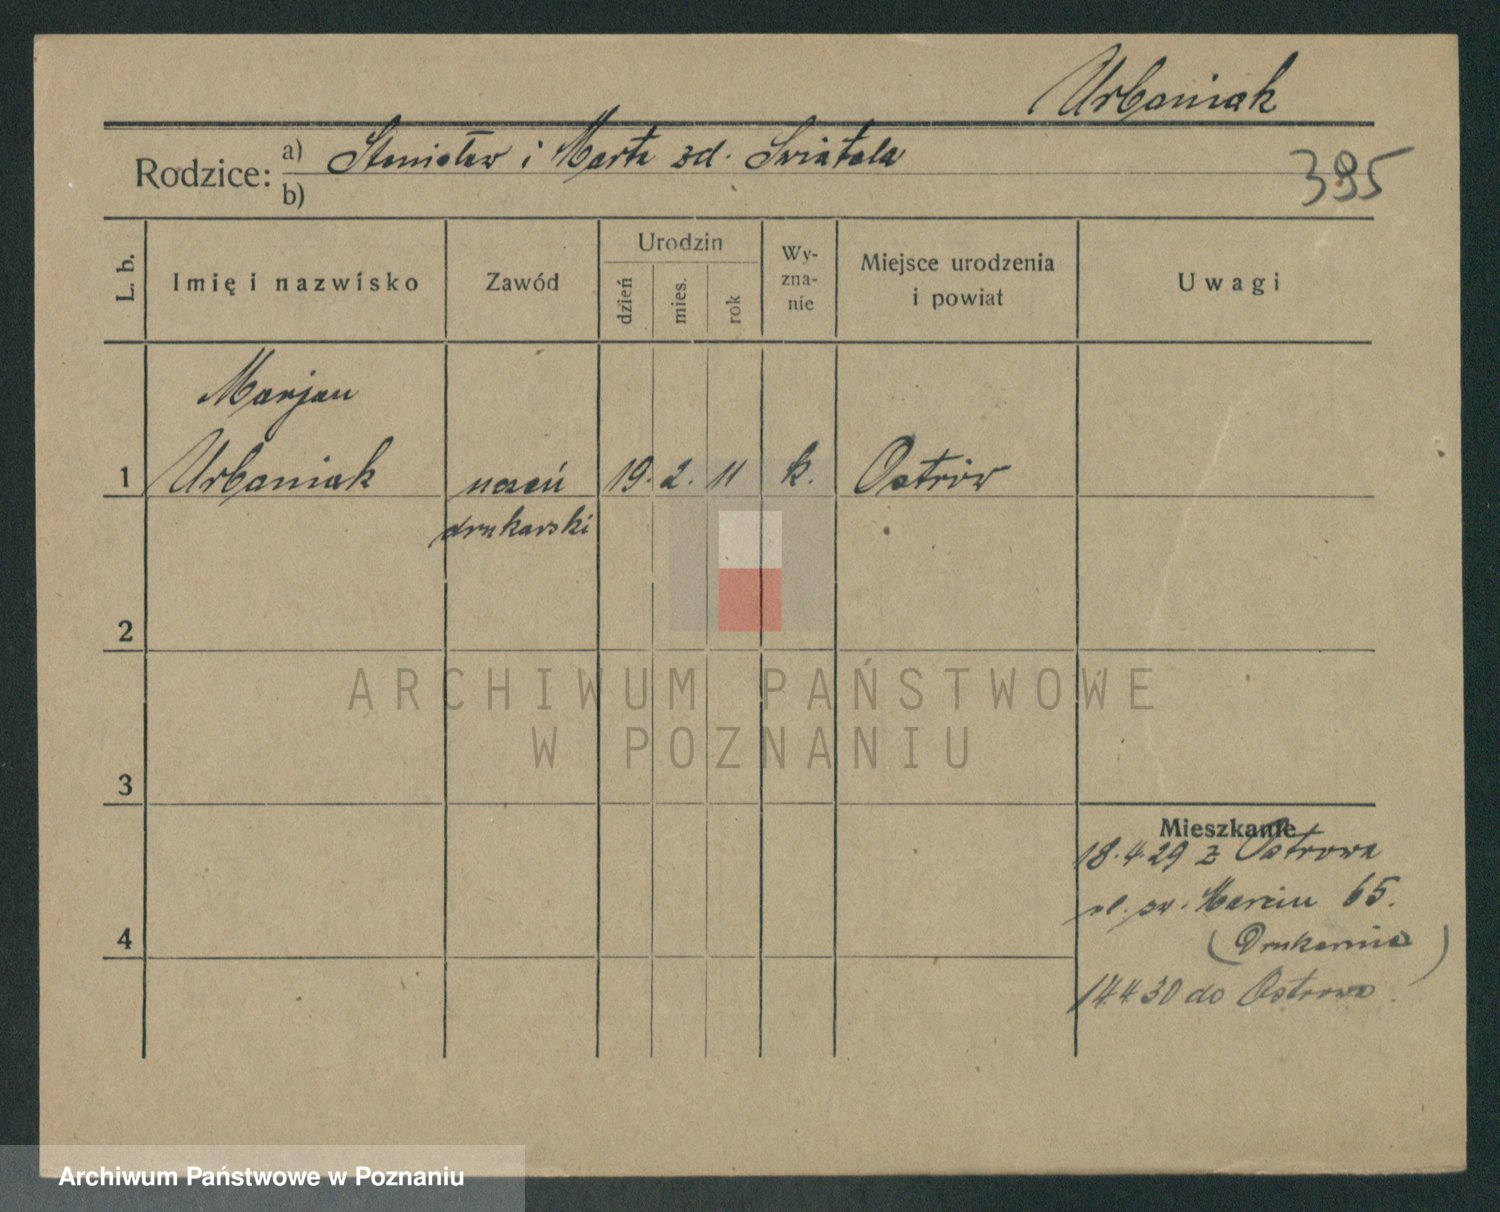 Urbaniak
Rodzice: a) Stanisław i Marta zd. Świątała
b)
395
L. b.
Imię i nazwisko
Zawód
Urodzin
dzień
mies.
rok
Wy-
zna-
nie
Miejsce urodzenia
i powiat
Uwagi
Marjan
1 Urbaniak uczeń 19. 2. 11 k. Ostrów
drukarski
2
ARCHIWUM PAŃSTWOWE
W POZNANIU
3
Mieszkanie
18.4.29 z Ostrowa
ul. św. Marcin 65.
(Drukarnia)
4
14.4.30 do Ostrowa
Archiwum Państwowe w Poznaniu